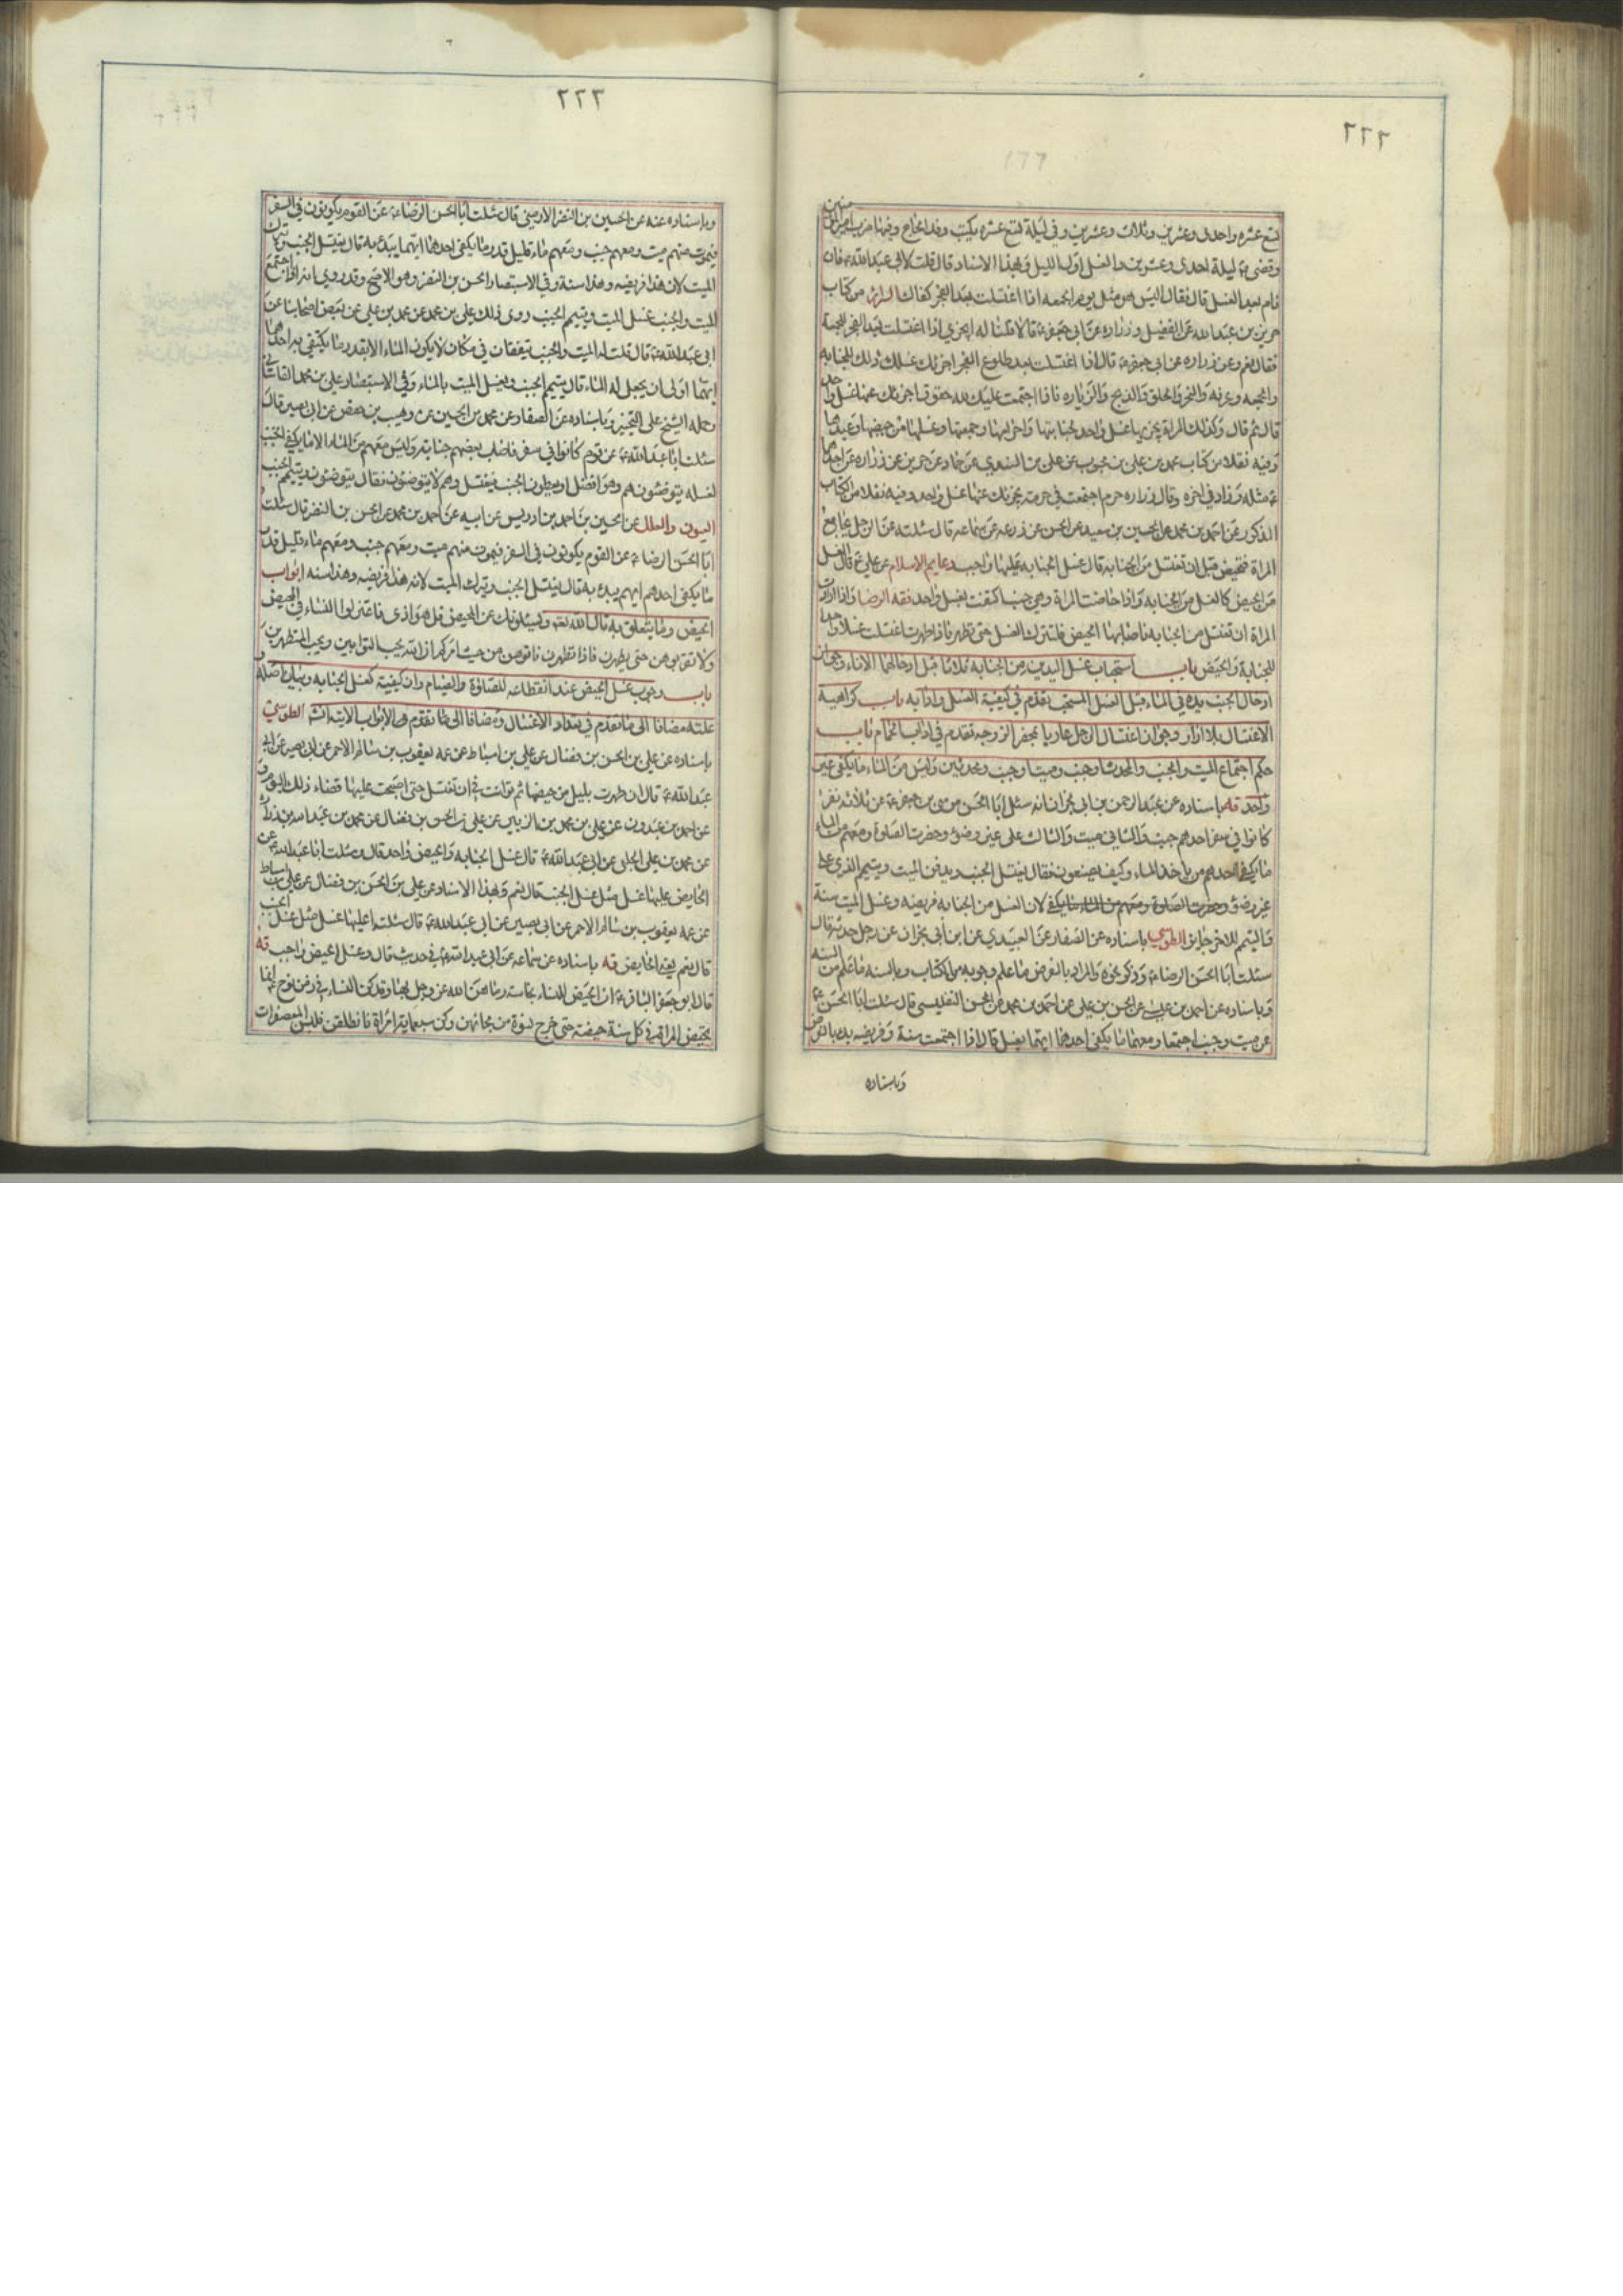 ٢٢٢
تسع عشره واحدى وعشرين وثلاث وعشرين وفي ليلة تسع عشره يكتب وفد الحاج وفيها ضرب امير المؤمنين
وقضى ع ليلة احدى وعشرين والغسل اول الليل وبهذا الاسناد قال قلت لابي عبدالله ع فان
نام بعد الغسل قال فقال اليس هو مثل يوم الجمعه اذا اغتسلت بعد الفجر كفاك السرائر من كتاب
حريز بن عبدالله عن الفضيل وزراره عن ابي جعفر ع قالا قلنا له ايجزي اذا اغتسلت بعد الفجر للجمعة
فقال نعم وعن زراره عن ابي جعفر ع قال اذا اغتسلت بعد طلوع الفجر اجزئك غسلك ذلك للجنابه
والجمعه وعرفه والنحر والحلق والذبح والزياره فاذا اجتمعت عليك لله حقوق اجزئك عنها غسل واحد
قال ثم قال وكذلك المراة يجزيها غسل واحد لجنابتها واحرامها وجمعتها وغسلها من حيضها وعيدها
وفيه نقلا من كتاب محمد بن علي بن محبوب عن علي بن السندي عن حماد عن حريز عن زراره عن احدهما
ع مثله وزاد في اخره وقال زراره حرم اجتمعت في حرمة يجزئك عنها غسل واحد وفيه نقلا من الكتاب
المذكور عن احمد بن محمد عن الحسين بن سعيد عن الحسن عن زرعه عن سماعه قال سئلته عن الرجل يجامع
المراة فتحيض قبل ان تغتسل من الجنابه قال غسل الجنابه عليها واجب دعايم الاسلام عن علي ع قال الغسل
من الحيض كالغسل من الجنابه واذا حاضت المراة وهي جنب اكتفت بغسل واحد فقه الرضا واذا ارادت
المراة ان تغتسل من الجنابه فاصابها الحيض فلتترك الغسل حتى تطهر فاذا طهرت اغتسلت غسلا واحدا
للجنابة والحيض باب استحباب غسل اليدين من الجنابه ثلاثا قبل ادخالهما الاناء وجواز
ادخال الجنب يده في الماء قبل الغسل المستحب تقدم في كيفية الغسل وادابه باب كراهية
الاغتسال بلا ازار وجواز اغتسال الرجل عاريا بمحضر الزوجه تقدم في اداب الحمام باب
حكم اجتماع الميت والجنب والمحدث او جنب وميت او جنب ومحدثين وليس من الماء ما يكفي غير
واحد قه باسناده عن عبدالرحمن بن ابي نجران انه سئل ابا الحسن موسى بن جعفر ع عن ثلاثه نفر
كانوا في سفر احدهم جنب والثاني ميت والثالث على غير وضوء وحضرت الصلوة ومعهم من الماء
ما يكفي احدهم من ياخذ الماء وكيف يصنعون فقال يغتسل الجنب ويدفن الميت ويتيمم الذي على
غير وضوء وحضرت الصلوة ومعهم من الماء ما يكفي لان الغسل من الجنابه فريضه وغسل الميت سنة
والتيمم للاخر جايز الطوسي باسناده عن الصفار عن العبيدي عن ابن ابي نجران عن رجل حدثه قال
سئلت ابا الحسن الرضا ع وذكر نحوه والمراد بالفرض ما علم وجوبه من الكتاب وبالسنه ما علم من السنه
وباسناده عن احمد بن علي عن الحسن بن علي عن احمد بن محمد عن الحسن التفليسي قال سئلت ابا الحسن ع
عن ميت وجنب اجتمعا ومعهما ما يكفي احدهما ايهما يغسل قال اذا اجتمعت سنة وفريضه بدء بالفرض
وباسناده
٢٢٣
وباسناده عنه عن الحسين بن النضر الارمني قال سئلت ابا الحسن الرضا ع عن القوم يكونون في السفر
فيموت منهم ميت ومعهم جنب ومعهم ماء قليل قدر ما يكفي احدهما ايهما يبدء به قال يغتسل الجنب ويترك
الميت لان هذا فريضه وهذا سنة وفي الاستبصار الحسن بن النضر وهو الاصح وقد روي انه اذا اجتمع
الميت والجنب غسل الميت ويتيمم الجنب روى ذلك علي بن محمد عن محمد بن علي عن بعض اصحابنا عن
ابي عبدالله ع قال قلت له الميت والجنب يتفقان في مكان لا يكون الماء الا بقدر ما يكتفي به احدهما
ايهما اولى ان يجعل له الماء قال يتيمم الجنب ويغسل الميت بالماء وفي الاستبصار علي بن محمد القاساني
وحمله الشيخ على التخيير وباسناده عن الصفار عن محمد بن الحسين عن وهيب بن حفص عن ابي بصير قال
سئلت ابا عبدالله ع عن قوم كانوا في سفر فاصاب بعضهم جنابة وليس معهم من الماء الا ما يكفي الجنب
لغسله يتوضئون هم وهو افضل او يعطون الجنب فيغتسل وهم لا يتوضئون فقال يتوضئون ويتيمم الجنب
العيون والعلل عن الحسين بن احمد بن ادريس عن ابيه عن احمد بن محمد عن الحسن بن النضر قال سئلت
ابا الحسن الرضا ع عن القوم يكونون في السفر فيموت منهم ميت ومعهم جنب ومعهم ماء قليل قدر
ما يكفي احدهم ايهم يبدء به قال يغتسل الجنب ويترك الميت لانه هذا فريضه وهذا سنه ابواب
الحيض وما يتعلق به قال الله تعالى ويسئلونك عن المحيض قل هو اذى فاعتزلوا النساء في المحيض
ولا تقربوهن حتى يطهرن فاذا تطهرن فاتوهن من حيث امركم الله ان الله يحب التوابين ويحب المتطهرين
باب وجوب غسل الحيض عند انقطاعه للصلوة والصيام وان كيفيته كغسل الجنابه وبيان اصله و
علته مضافا الى ما تقدم في تعداد الاغسال ومضافا الى ما تقدم من الابواب الاتيه انشا الطوسي
باسناده عن علي بن الحسن بن فضال عن علي بن اسباط عن عمه يعقوب بن سالم الاحمر عن ابي بصير عن ابي
عبدالله ع قال ان طهرت بليل من حيضها ثم توانت في ان تغتسل حتى اصبحت عليها قضاء ذلك اليوم و
عن احمد بن عبدون عن علي بن محمد بن الزبير عن علي بن الحسن بن فضال عن محمد بن عبدالله بن زراره
عن محمد بن علي الحلبي عن ابي عبدالله ع قال غسل الجنابه والحيض واحد قال وسئلت ابا عبدالله ع عن
الحايض عليها غسل مثل غسل الجنب قال نعم وبهذا الاسناد عن علي بن الحسن بن فضال عن علي بن اسباط
عن عمه يعقوب بن سالم الاحمر عن ابي بصير عن ابي عبدالله ع قال سئلته اعليها غسل مثل غسل الجنب
قال نعم يعني الحايض قه باسناده عن سماعه عن ابي عبدالله ع في حديث قال وغسل الحيض واجب قه
قال ابو جعفر الباقر ع ان الحيض للنساء نجاسة رماهن الله عز وجل بها وقد كن النساء في زمن نوح انما
تحيض المراة في كل سنة حيضة حتى خرج نسوة من مجانهن وكن سبعماية امراة فانطلقن فلبسن المعصفرات